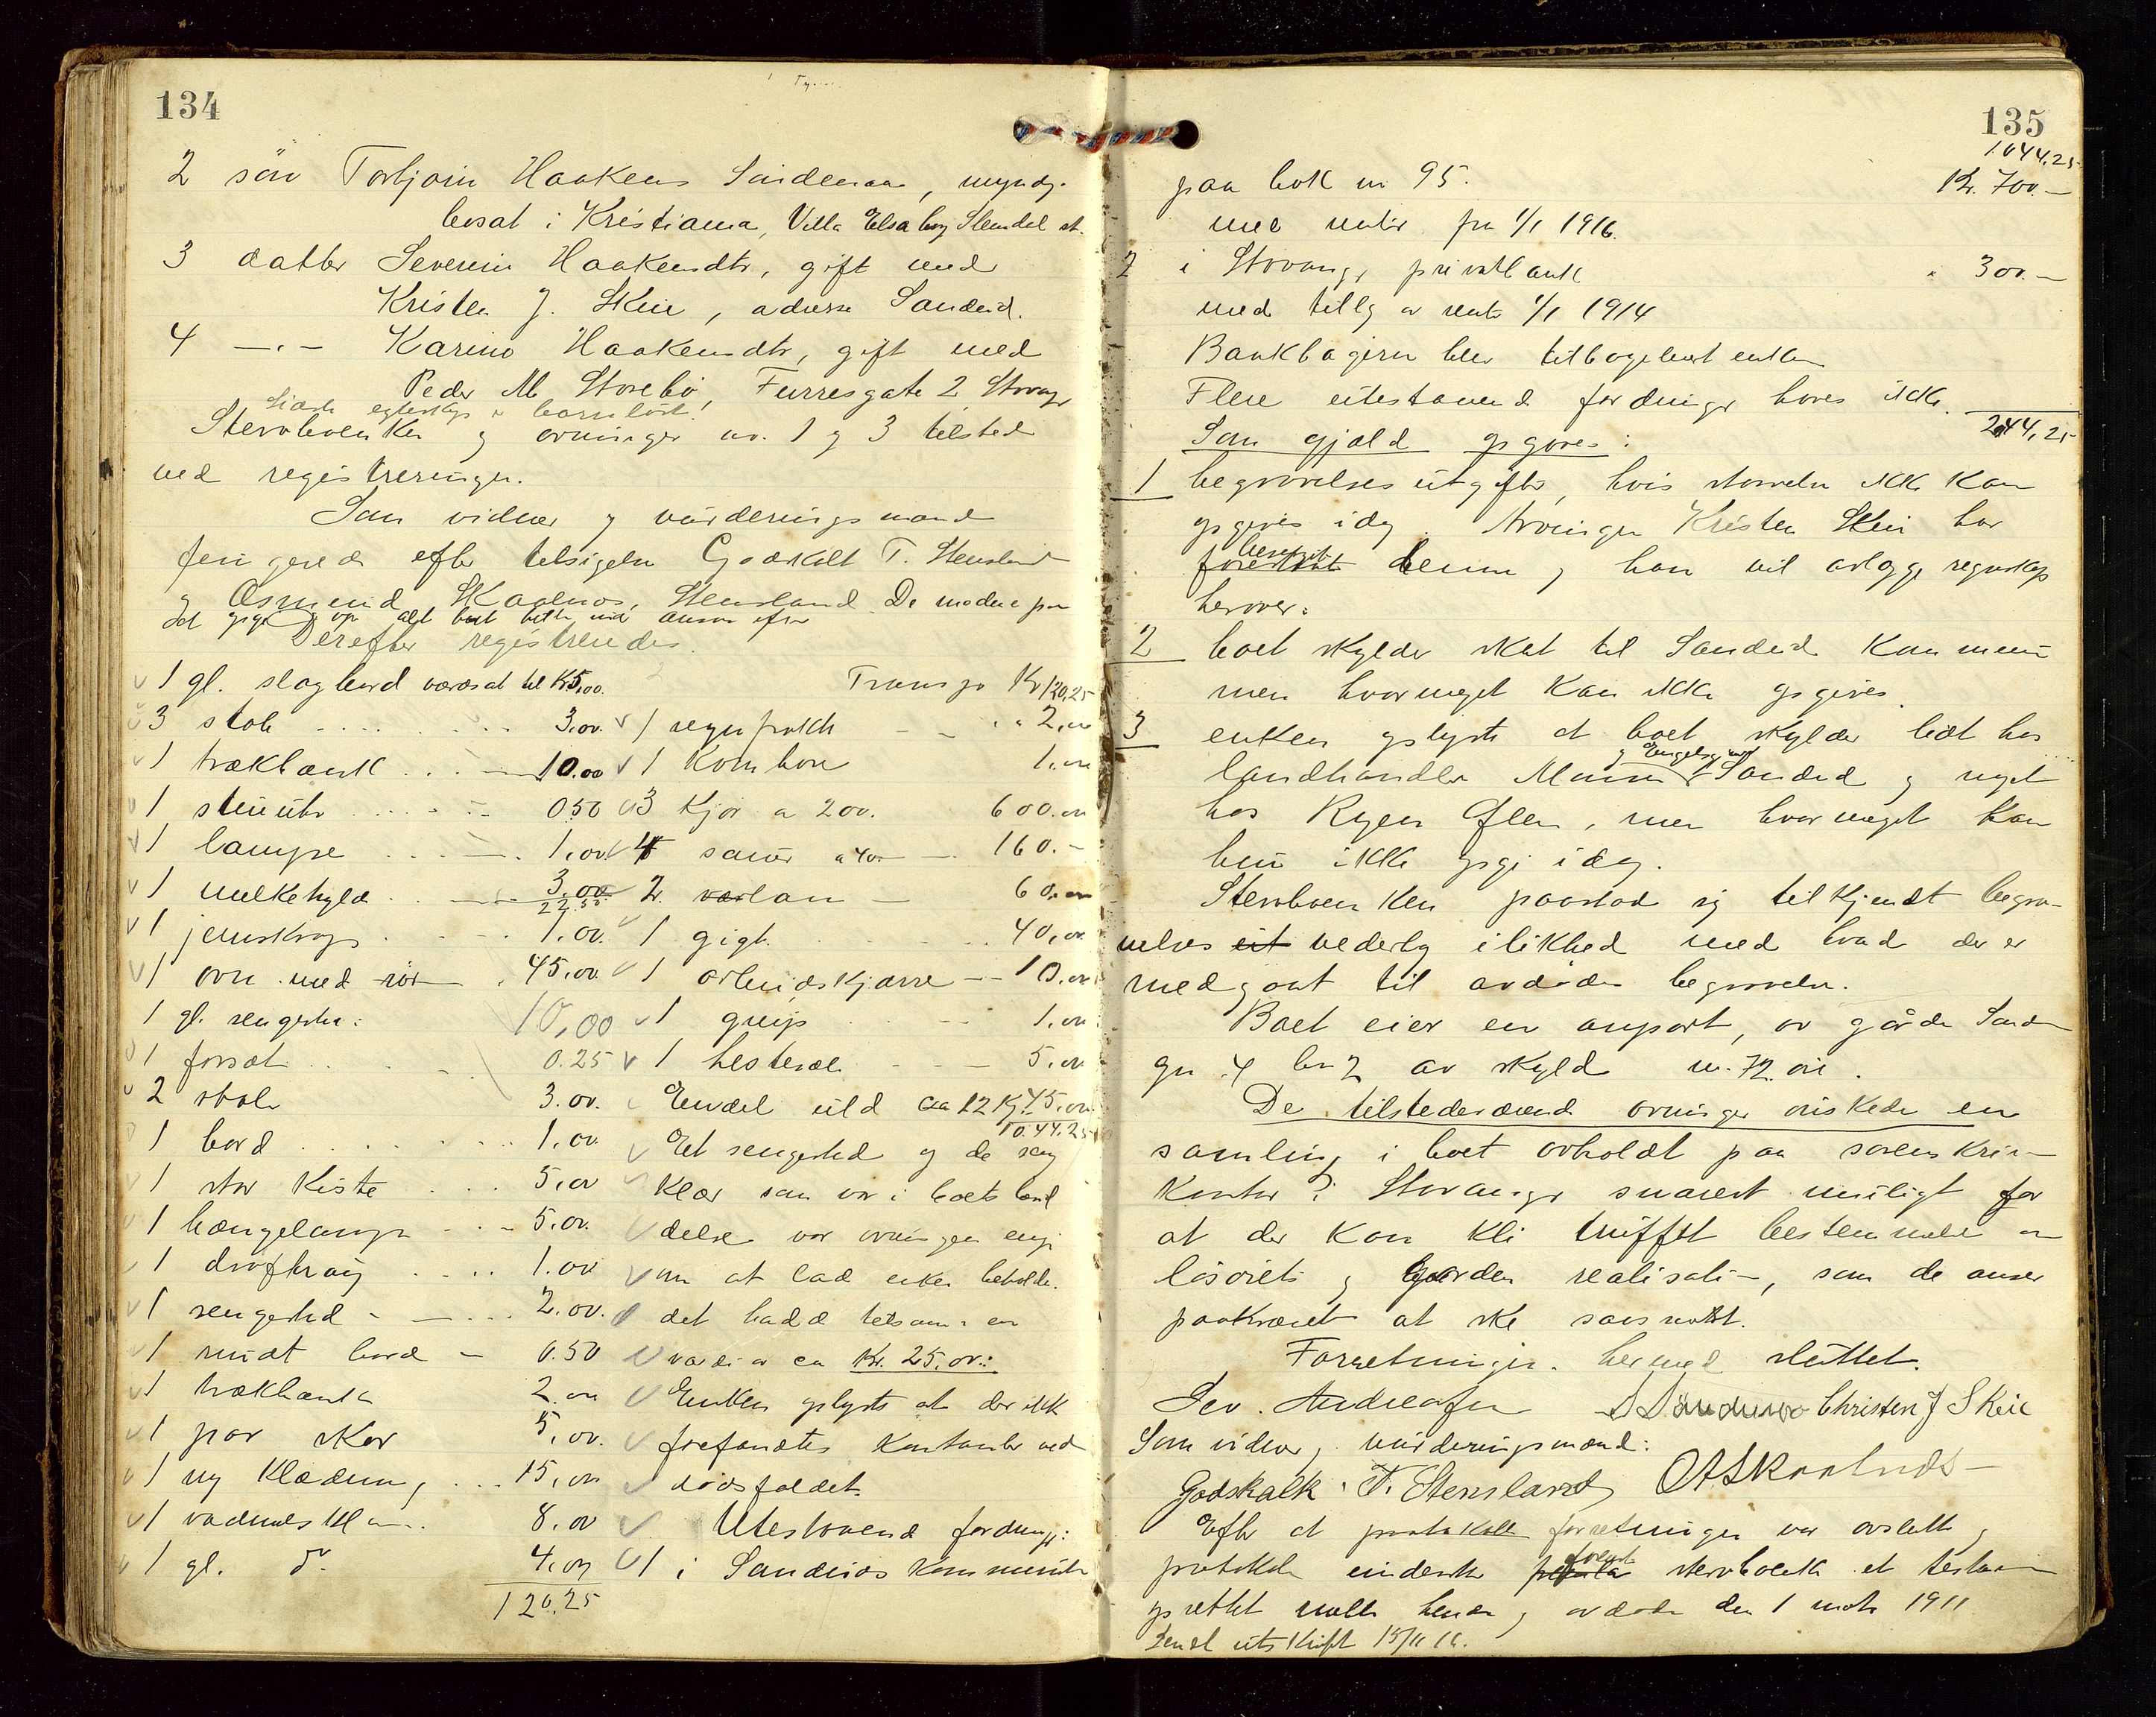 134
2 søn Torbjørn Haakens Sandenaa, myndg.
bosat i Kristiania, Villa Elsaborg Slemdal st.
3 datter Severine Haakensdtr, gift med
Kristen J. Skeie, adresse Sandeid.
4 —"— Karine Haakensdtr, gift med
Peder M Storebø, Furresgate 2 Stavanger
Sidste egteskap er barnløst!
Stervboenken og arvinger nr. 1 og 3 tilstede
ved registreringen.
Som vidner og vurderingsmænd
fungerede efter tilsigelse Godskalk T. Stensland
og Osmund Skaalnes, Stensland. De mødte paa
det opgit op alt boet tilh. med ansvar efter
Derefter registreredes.
1 gl. slagbord værdsat til Kr 5,00.
3 stole 3.00.
1 trækbænk 10.00
1 stueuhr 0.50
1 lampe 1.00
1 melkehyld 3.00
22.50
1 jernskrap 1.00.
1 ovn med rør 45.00
1 gl. sengested: 10,00
1 forsæt 0.25
2 stole 3.00.
1 bord 1.00
1 stor kiste 5.00
1 hængelampe 5.00.
1 drøftetraug 1.00
1 sengested 2.00.
1 rundt bord 0.50
1 trækbænk 2.00
1 par sko 5.00.
1 ny klædning 15.00
1 vadmels kl. 8.00
1 gl. do 4.00
120.25
Transp Kr 120.25
1 regnfrakk " " 2,00
1 kornbøre 1.00
3 kjør a 200. 600.00
4 sauer a 40 — 160.-
2 værlam — 60.00
1 gigt 40,00
1 arbeidskjærre 10.00
1 greip 1.00
1 hestesæl 5.00
Endel uld ca 12 kg. 45.00
1044.25
Et sengested og de seng
klær som var i boets behol
delse var arvingene enig
om at lade enken beholde.
det hadde tilsammen en
værdi av ca Kr. 25.00.
Enken oplyste at der ikke
forefandtes kontanter ved
dødsfaldet.
Utestaaende fordringer:
1 i Sandeids kommunes
135
1044,25
paa bok nr 95. Kr. 700.—
med renter fra 1/1 1916.
2 i Stavanger privatbank " 300.—
med tillæg av rente 1/1 1914
Bankbøgerne blev tilbagelevert enken
Flere utestaaende fordringer haves ikke.
2044,25
Som gjæld opgaves:
1 begravelsesutgifter, hvis størrelse ikke kan
opgives idag. Arvingen Kristen Skeie har
besørget
forestaat denne og han vil avlægge regnskap
herover.
2 boet skylder skat til Sandeid kommune
men hvormeget kan ikke opgives.
3 enken oplyste at boet skylder lidt hos
landhandler Munn Sandeid og noget
hos Rygen Ølen, men hvormeget kan
hun ikke opgi idag.
Stervboenken paastod sig tilkjendt begra-
velses ut vederlag i likhed med hvad der er
medgaat til avdødes begravelse.
Boet eier en anpart, av gården Sande
gnr. 4 bnr 2 av skyld m. 72 øre.
De tilstedeværende arvinger ønskede en
samling i boet avholdt paa sorenskriver-
kontor i Stavanger snarest muligt for
at der kan bli truffet bestemmelse om
løsørets og gaarden realisation, som de anser
paakrævet at ske saasnart.
Forretningen hermed sluttet.
Sev. Andreasen Christen J Skeie
Som vidner og vurderingsmænd:
Godskalk T. Stensland O A Skaalnes
Efter at protokollen forretningen var avslutte og
protokollen underskr. foreviste stervboenken et testament
oprettet mellem hende og avdøde den 1 mote 1911
Sendt utskrift 15/11 16.